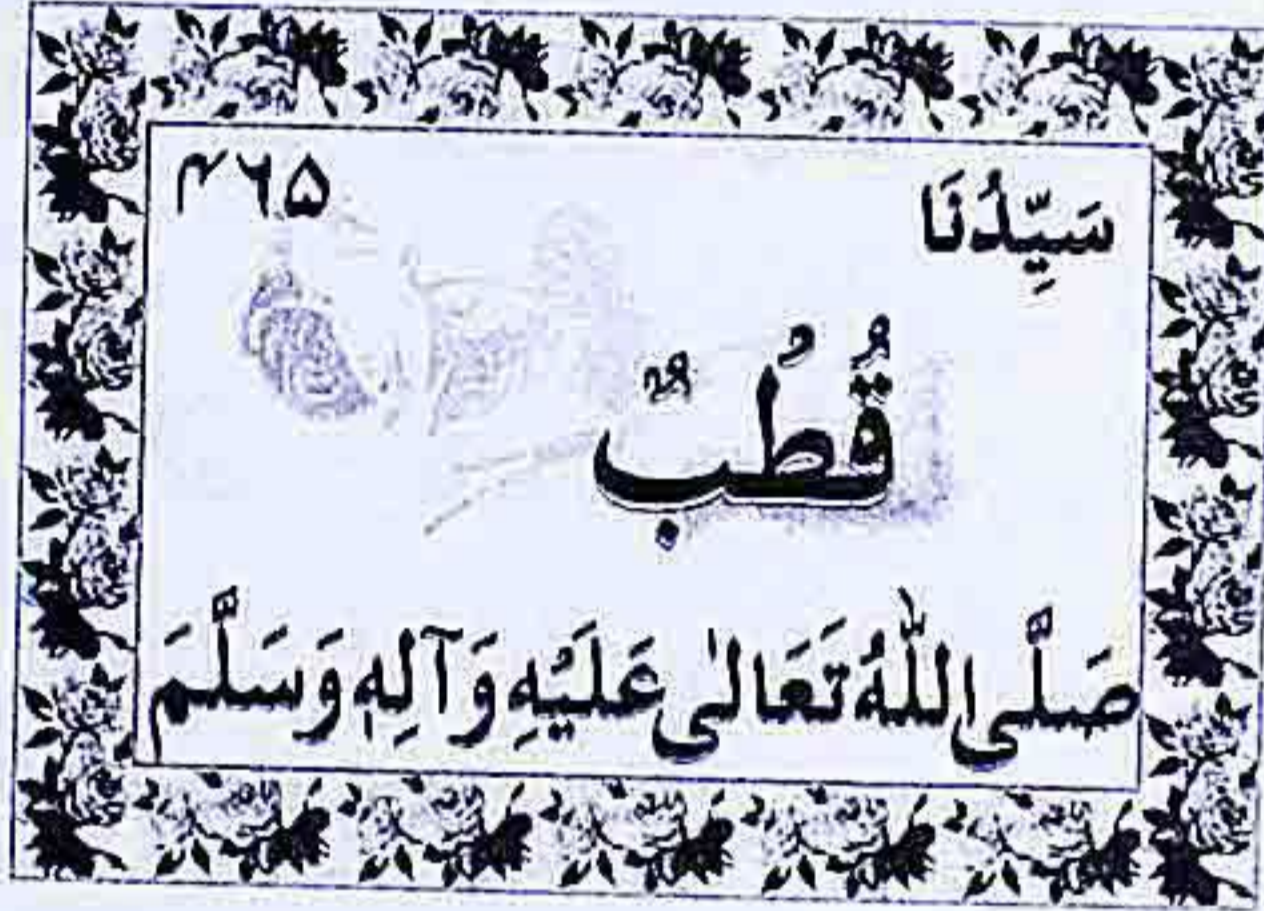 سَيِّدُنَا ۴۶۵
قُطُبٌ
صَلَّى اللّٰهُ تَعَالٰى عَلَيْهِ وَآلِهٖ وَسَلَّمَ